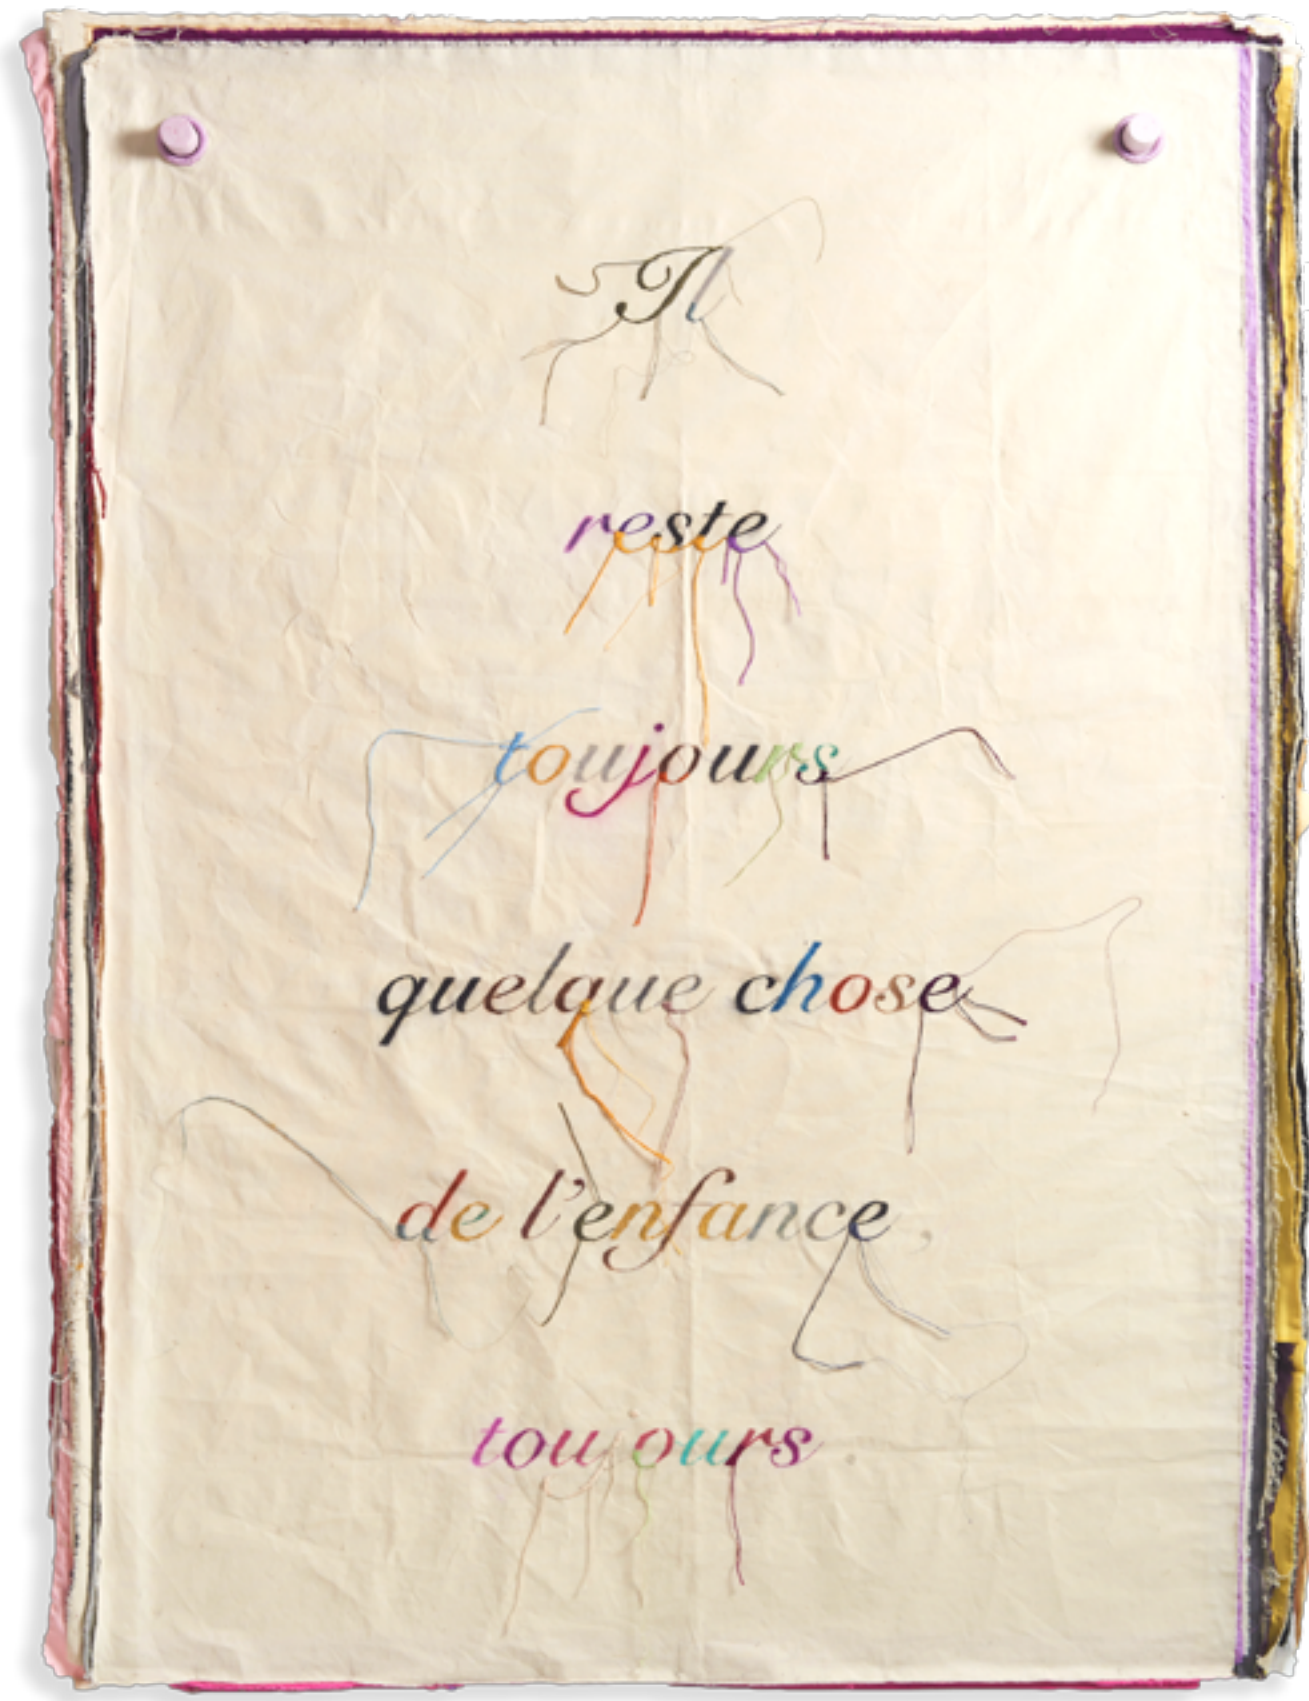 Il
reste
toujours
quelque chose
de l'enfance,
toujours.